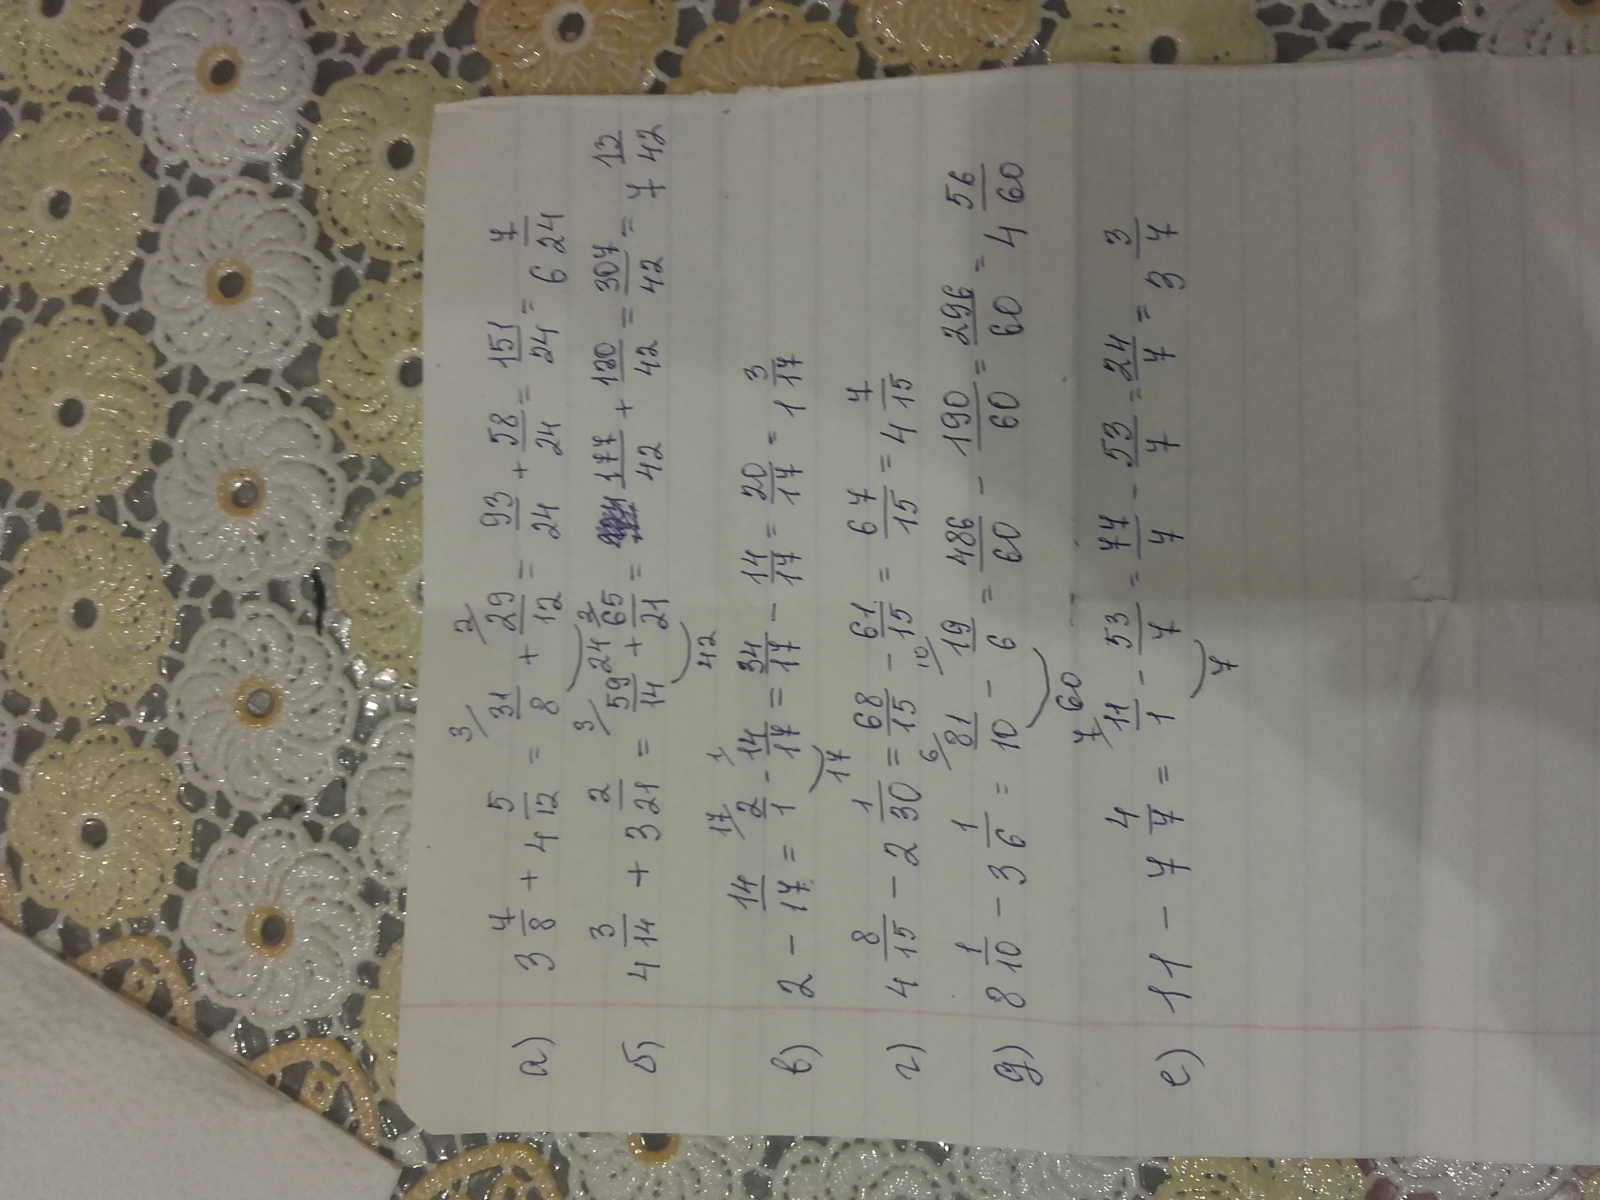 а) 3 7/8 + 4 5/12 = 31/8 (3/) + 29/12 (2/) = 93/24 + 58/24 = 151/24 = 6 7/24
24
б) 4 3/14 + 3 2/21 = 59/14 (3/) + 65/21 (2/) = 177/42 + 130/42 = 307/42 = 7 13/42
42
в) 2 - 14/17 = 2/1 (17/) - 14/17 (1/) = 34/17 - 14/17 = 20/17 = 1 3/17
17
г) 4 8/15 - 2 1/30 = 68/15 - 61/15 = 67/15 = 4 7/15
д) 8 1/10 - 3 1/6 = 81/10 (6/) - 19/6 (10/) = 486/60 - 190/60 = 296/60 = 4 56/60
60
е) 11 - 7 4/7 = 11/1 (7/) - 53/7 = 77/7 - 53/7 = 24/7 = 3 3/7
7